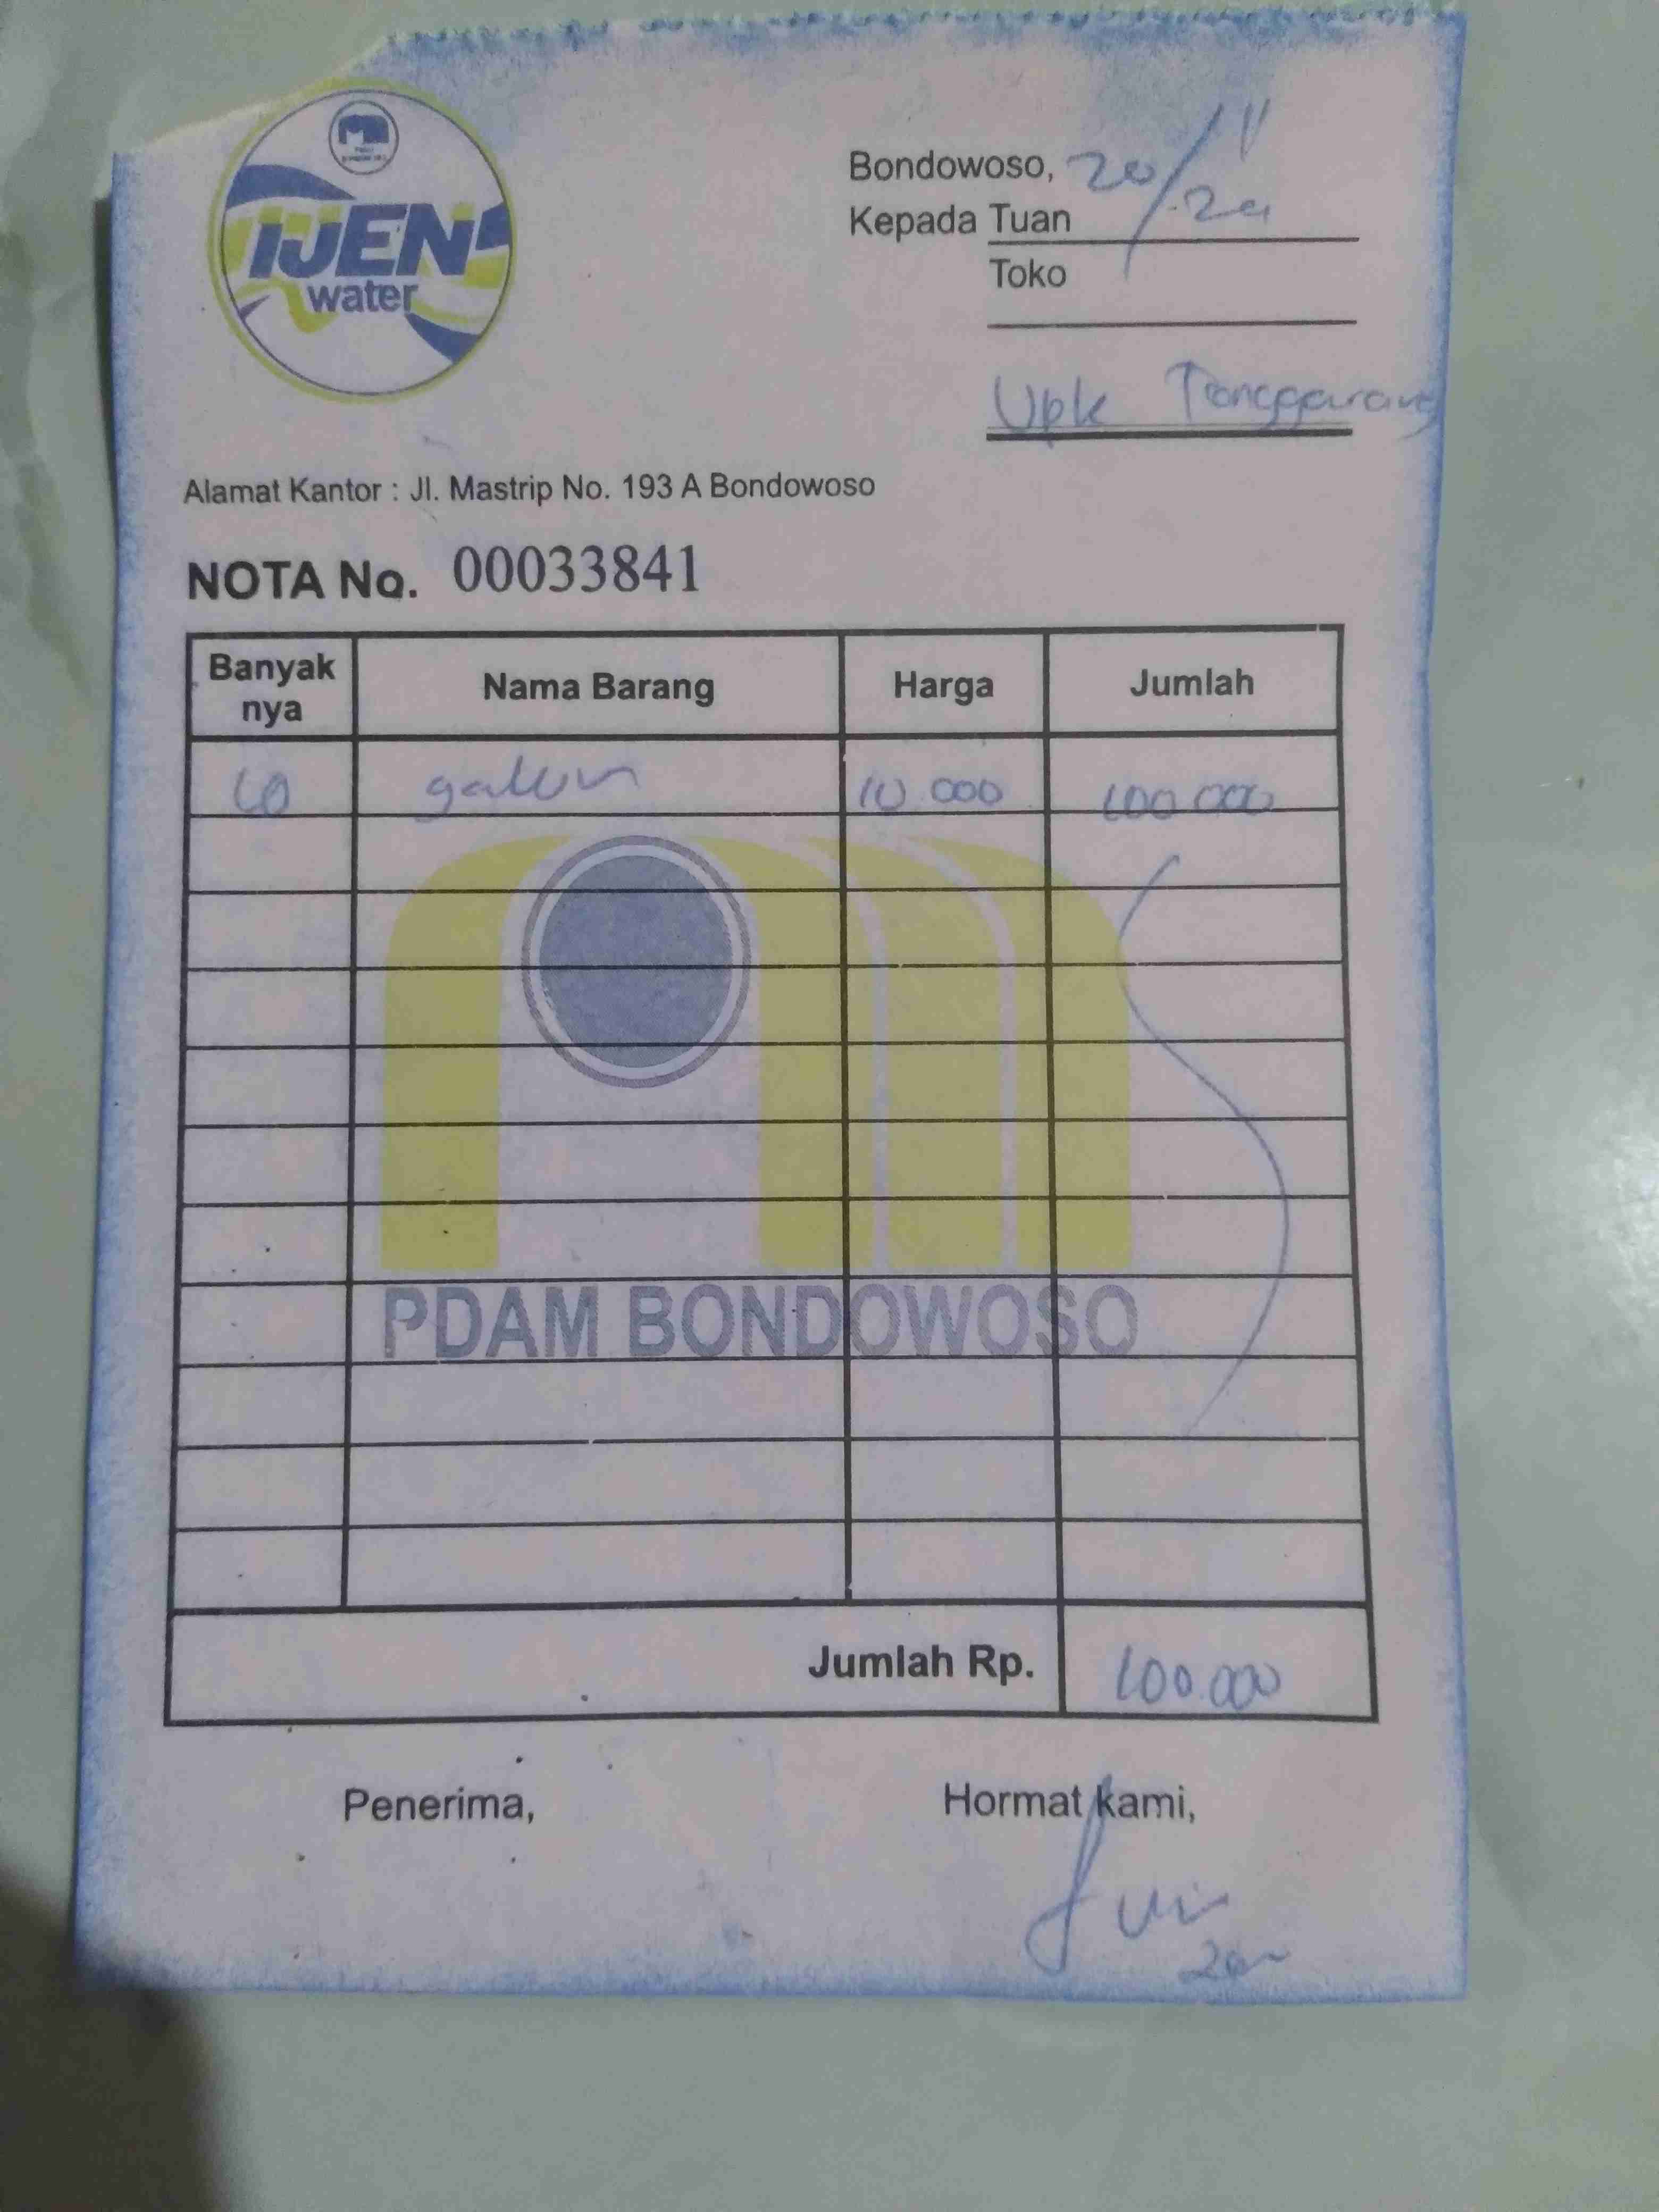 IJEN
water
Bondowoso, 20/11
.24
Kepada Tuan
Toko
Upk Tenggarang
Alamat Kantor : Jl. Mastrip No. 193 A Bondowoso
NOTA No. 00033841
Banyak nya Nama Barang Harga Jumlah
10 galon 10.000 100.000
PDAM BONDOWOSO
Jumlah Rp. 100.000
Penerima, Hormat kami,